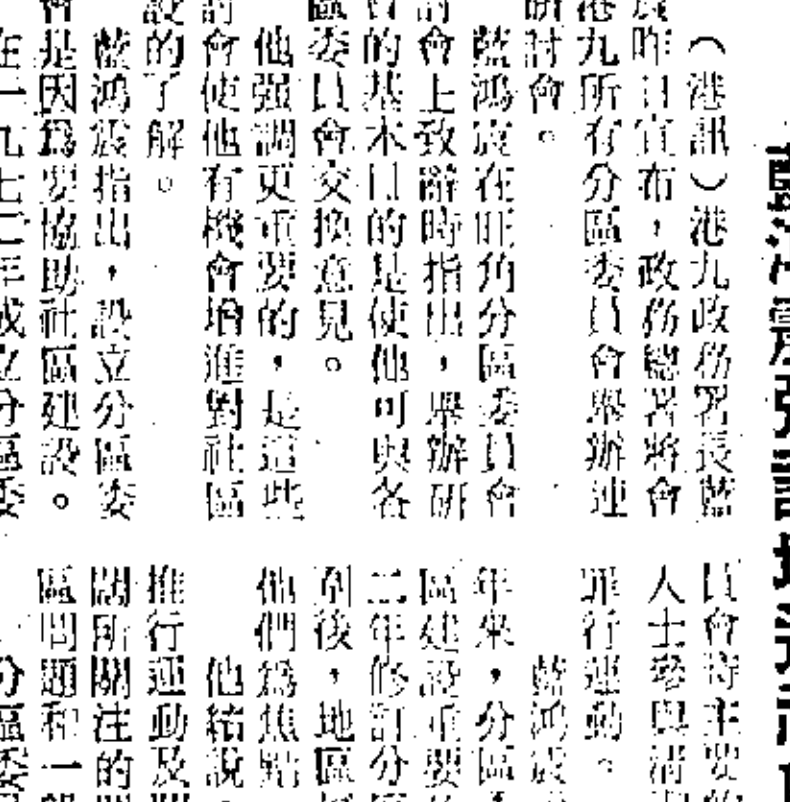 震强調
（港訊）港九政務署長藍
昨日宣布，政務總署將會
港九所有分區委員會舉辦連
研討會。
藍鴻震在旺角分區委員會
討會上致辭時指出，舉辦研
的基本目的是使他可與各
區委員會交換意見。
他强調更重要的，是這些
討會使他有機會增進對社區
設的了解。
藍鴻震指出，設立分區委
會是因為要協助社區建設。
在一九七二年成立分區委
員會時主要的
人士參與清
罪行運動。
藍鴻震
年來，分區
區建設重要
二年修訂分
劃後，地區
他們為焦點
他結說，
推行運動及
關所關注的
區問題和一
分區委